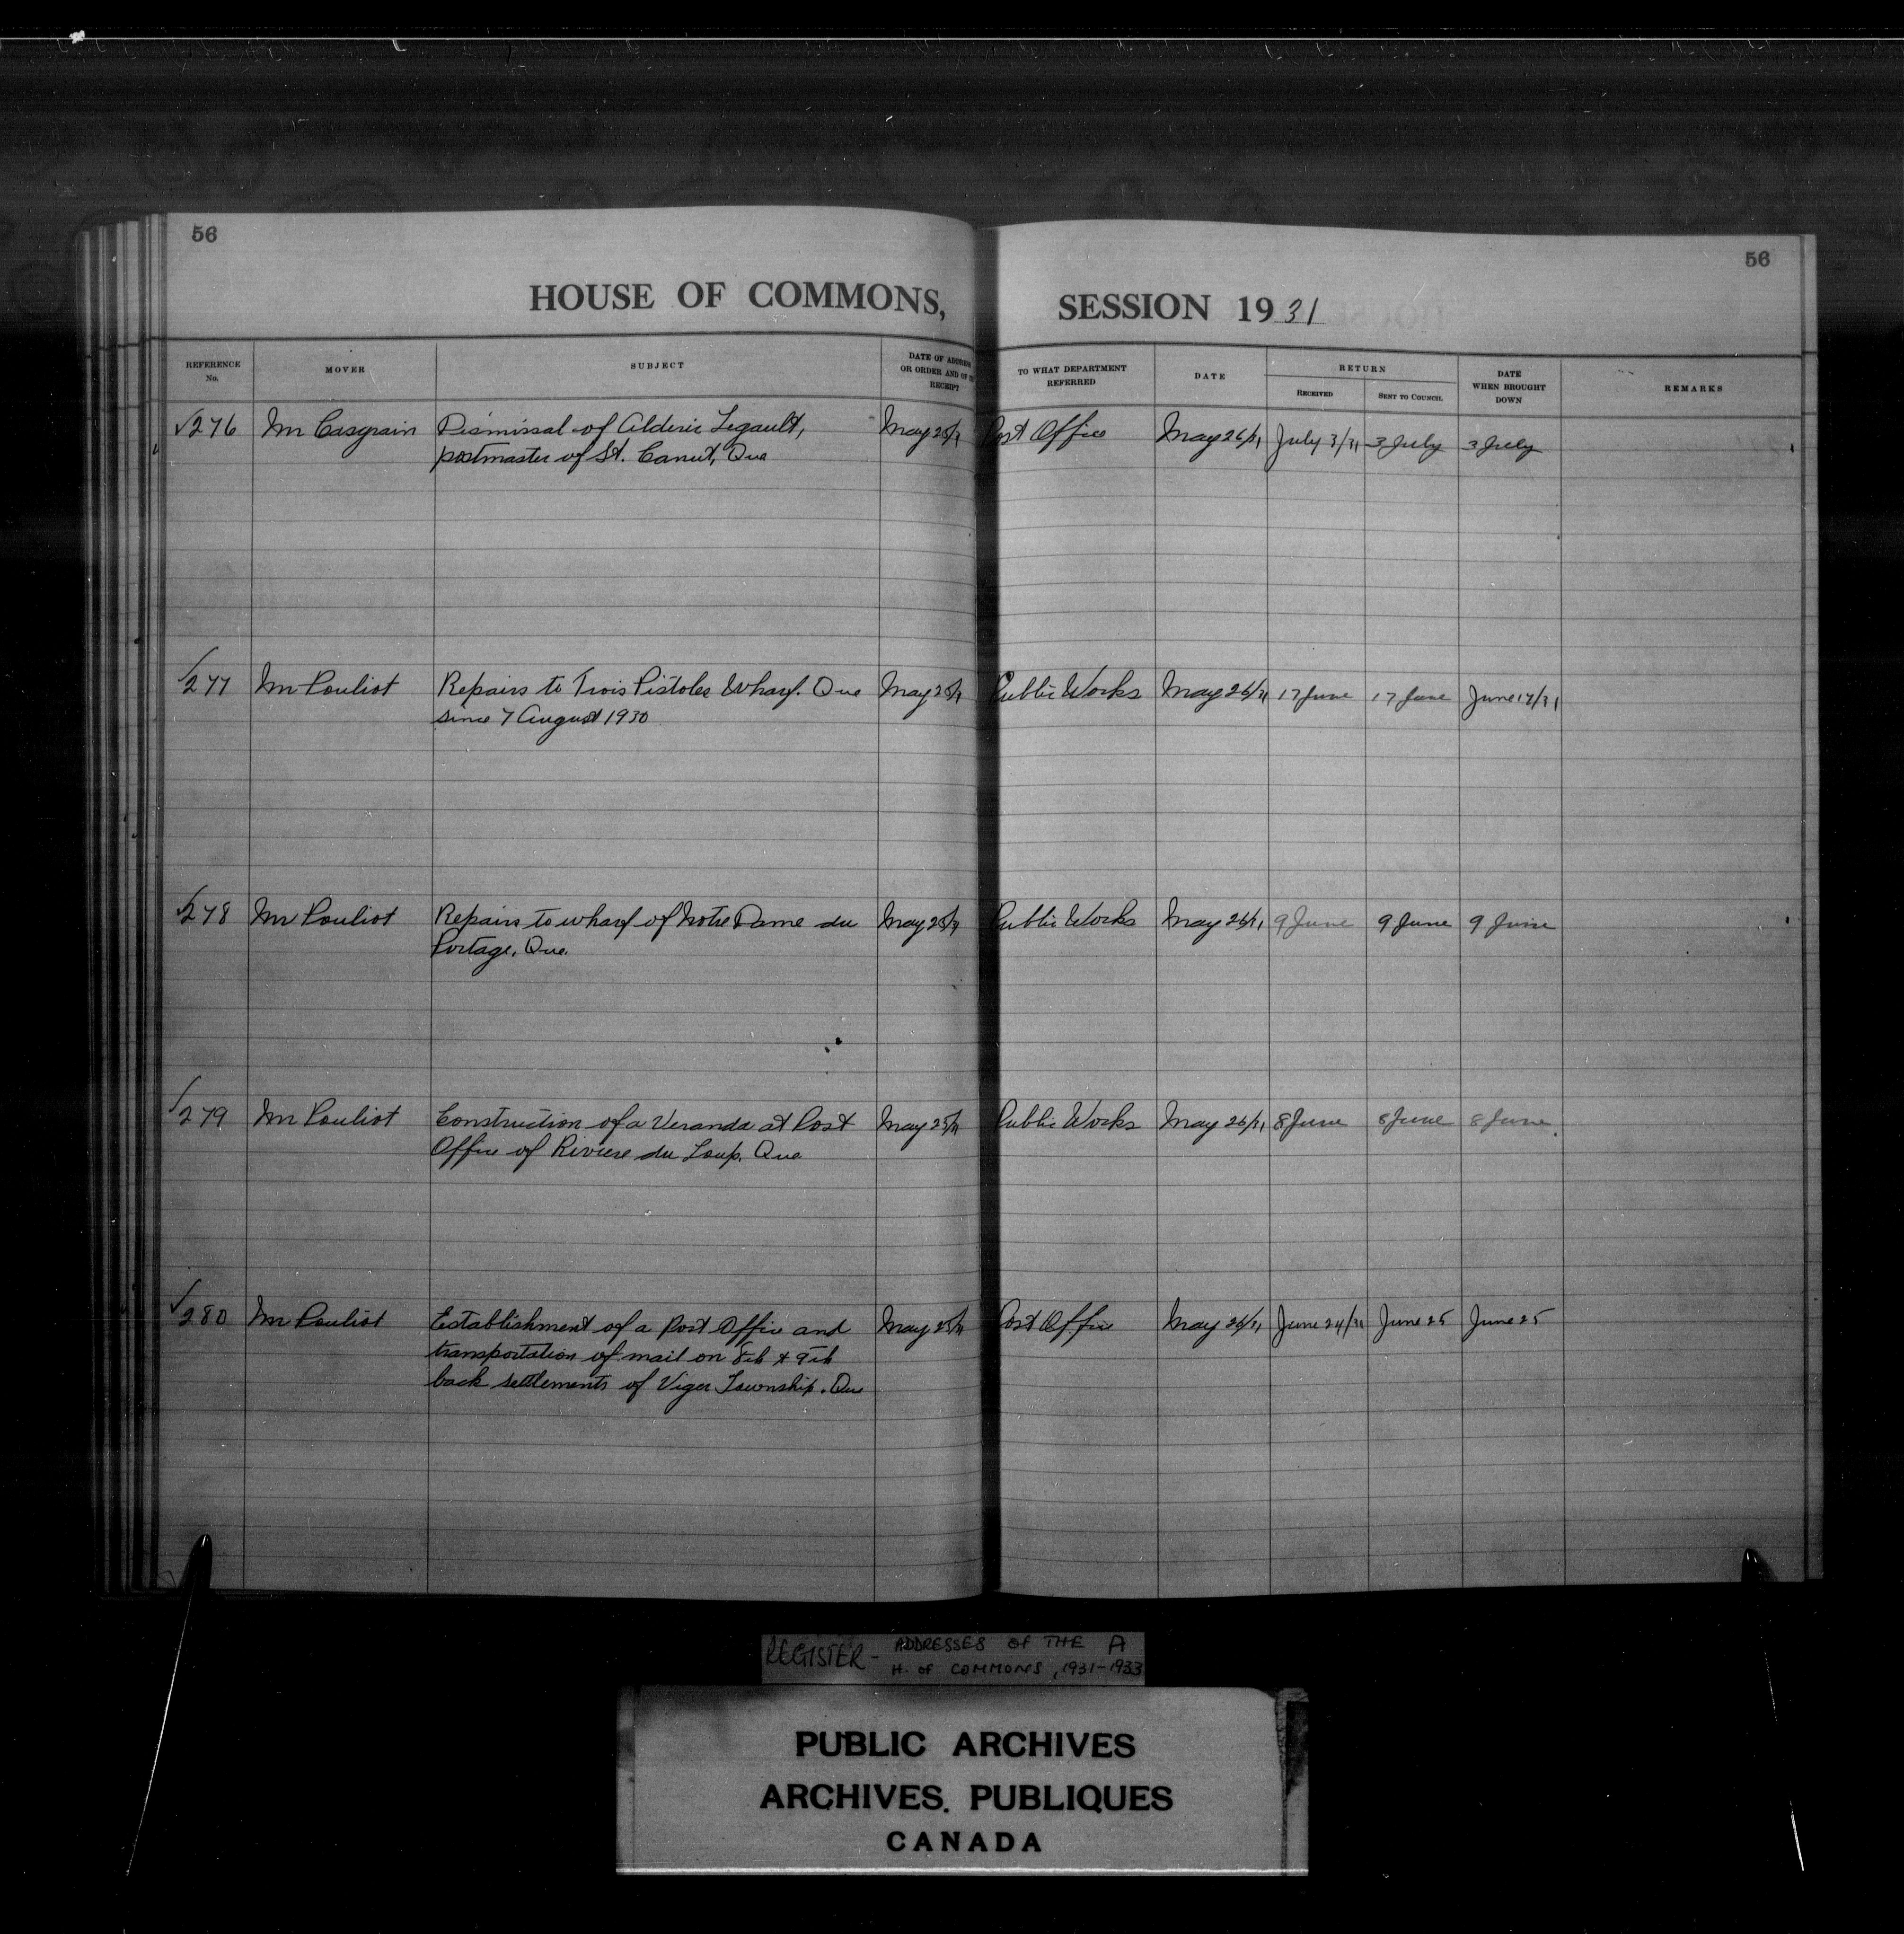 56
56
HOUSE OF COMMONS, SESSION 1931
REFERENCE No. MOVER SUBJECT DATE OF ADDRESS OR ORDER AND OF RECEIPT TO WHAT DEPARTMENT REFERRED DATE RETURN RECEIVED SENT TO COUNCIL DATE WHEN BROUGHT DOWN REMARKS
√276 Mr Casgrain Dismissal of Alderic Legault, May 25/31 Post Office May 26/31 July 3/31 3 July 3 July
postmaster of St. Canut, Que
√277 Mr Pouliot Repairs to Trois Pistoles Wharf. Que May 25/31 Public Works May 26/31 17 June 17 June June 17/31
since 7 August 1930
√278 Mr Pouliot Repairs to wharf of Notre Dame du May 25/31 Public Works May 26/31 9 June 9 June 9 June
Portage, Que.
√279 Mr Pouliot Construction of a Veranda at Post May 25/31 Public Works May 26/31 8 June 8 June 8 June
Office of Riviere du Loup. Que
√280 Mr Pouliot Establishment of a Post Office and May 25/31 Post Office May 26/31 June 24/31 June 25 June 25
transportation of mail on 8th & 9th
back settlements of Viger Township. Que
REGISTER - ADDRESSES OF THE A
H. OF COMMONS, 1931-1933
PUBLIC ARCHIVES
ARCHIVES PUBLIQUES
CANADA